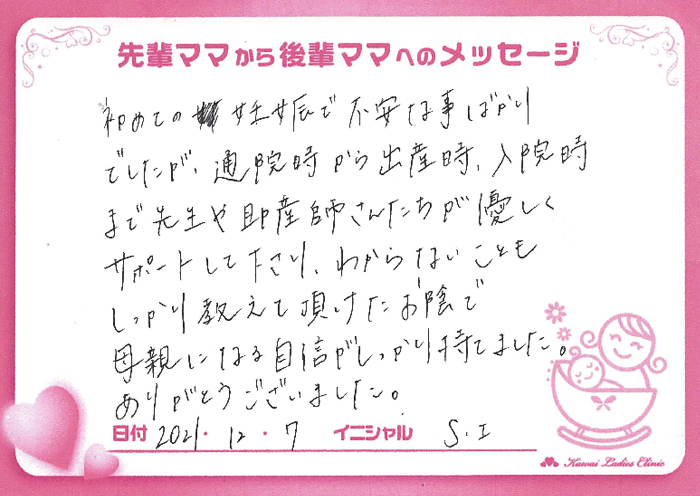 先輩ママから後輩ママへのメッセージ
初めての妊娠で不安な事ばかり
でしたが、通院時から出産時、入院時
まで先生や助産師さんたちが優しく
サポートして下さり、わからないことも
しっかり教えて頂けたお陰で
母親になる自信がしっかり持てました。
ありがとうございました。
日付 2021・12・7 イニシャル S.I
Kawai Ladies Clinic